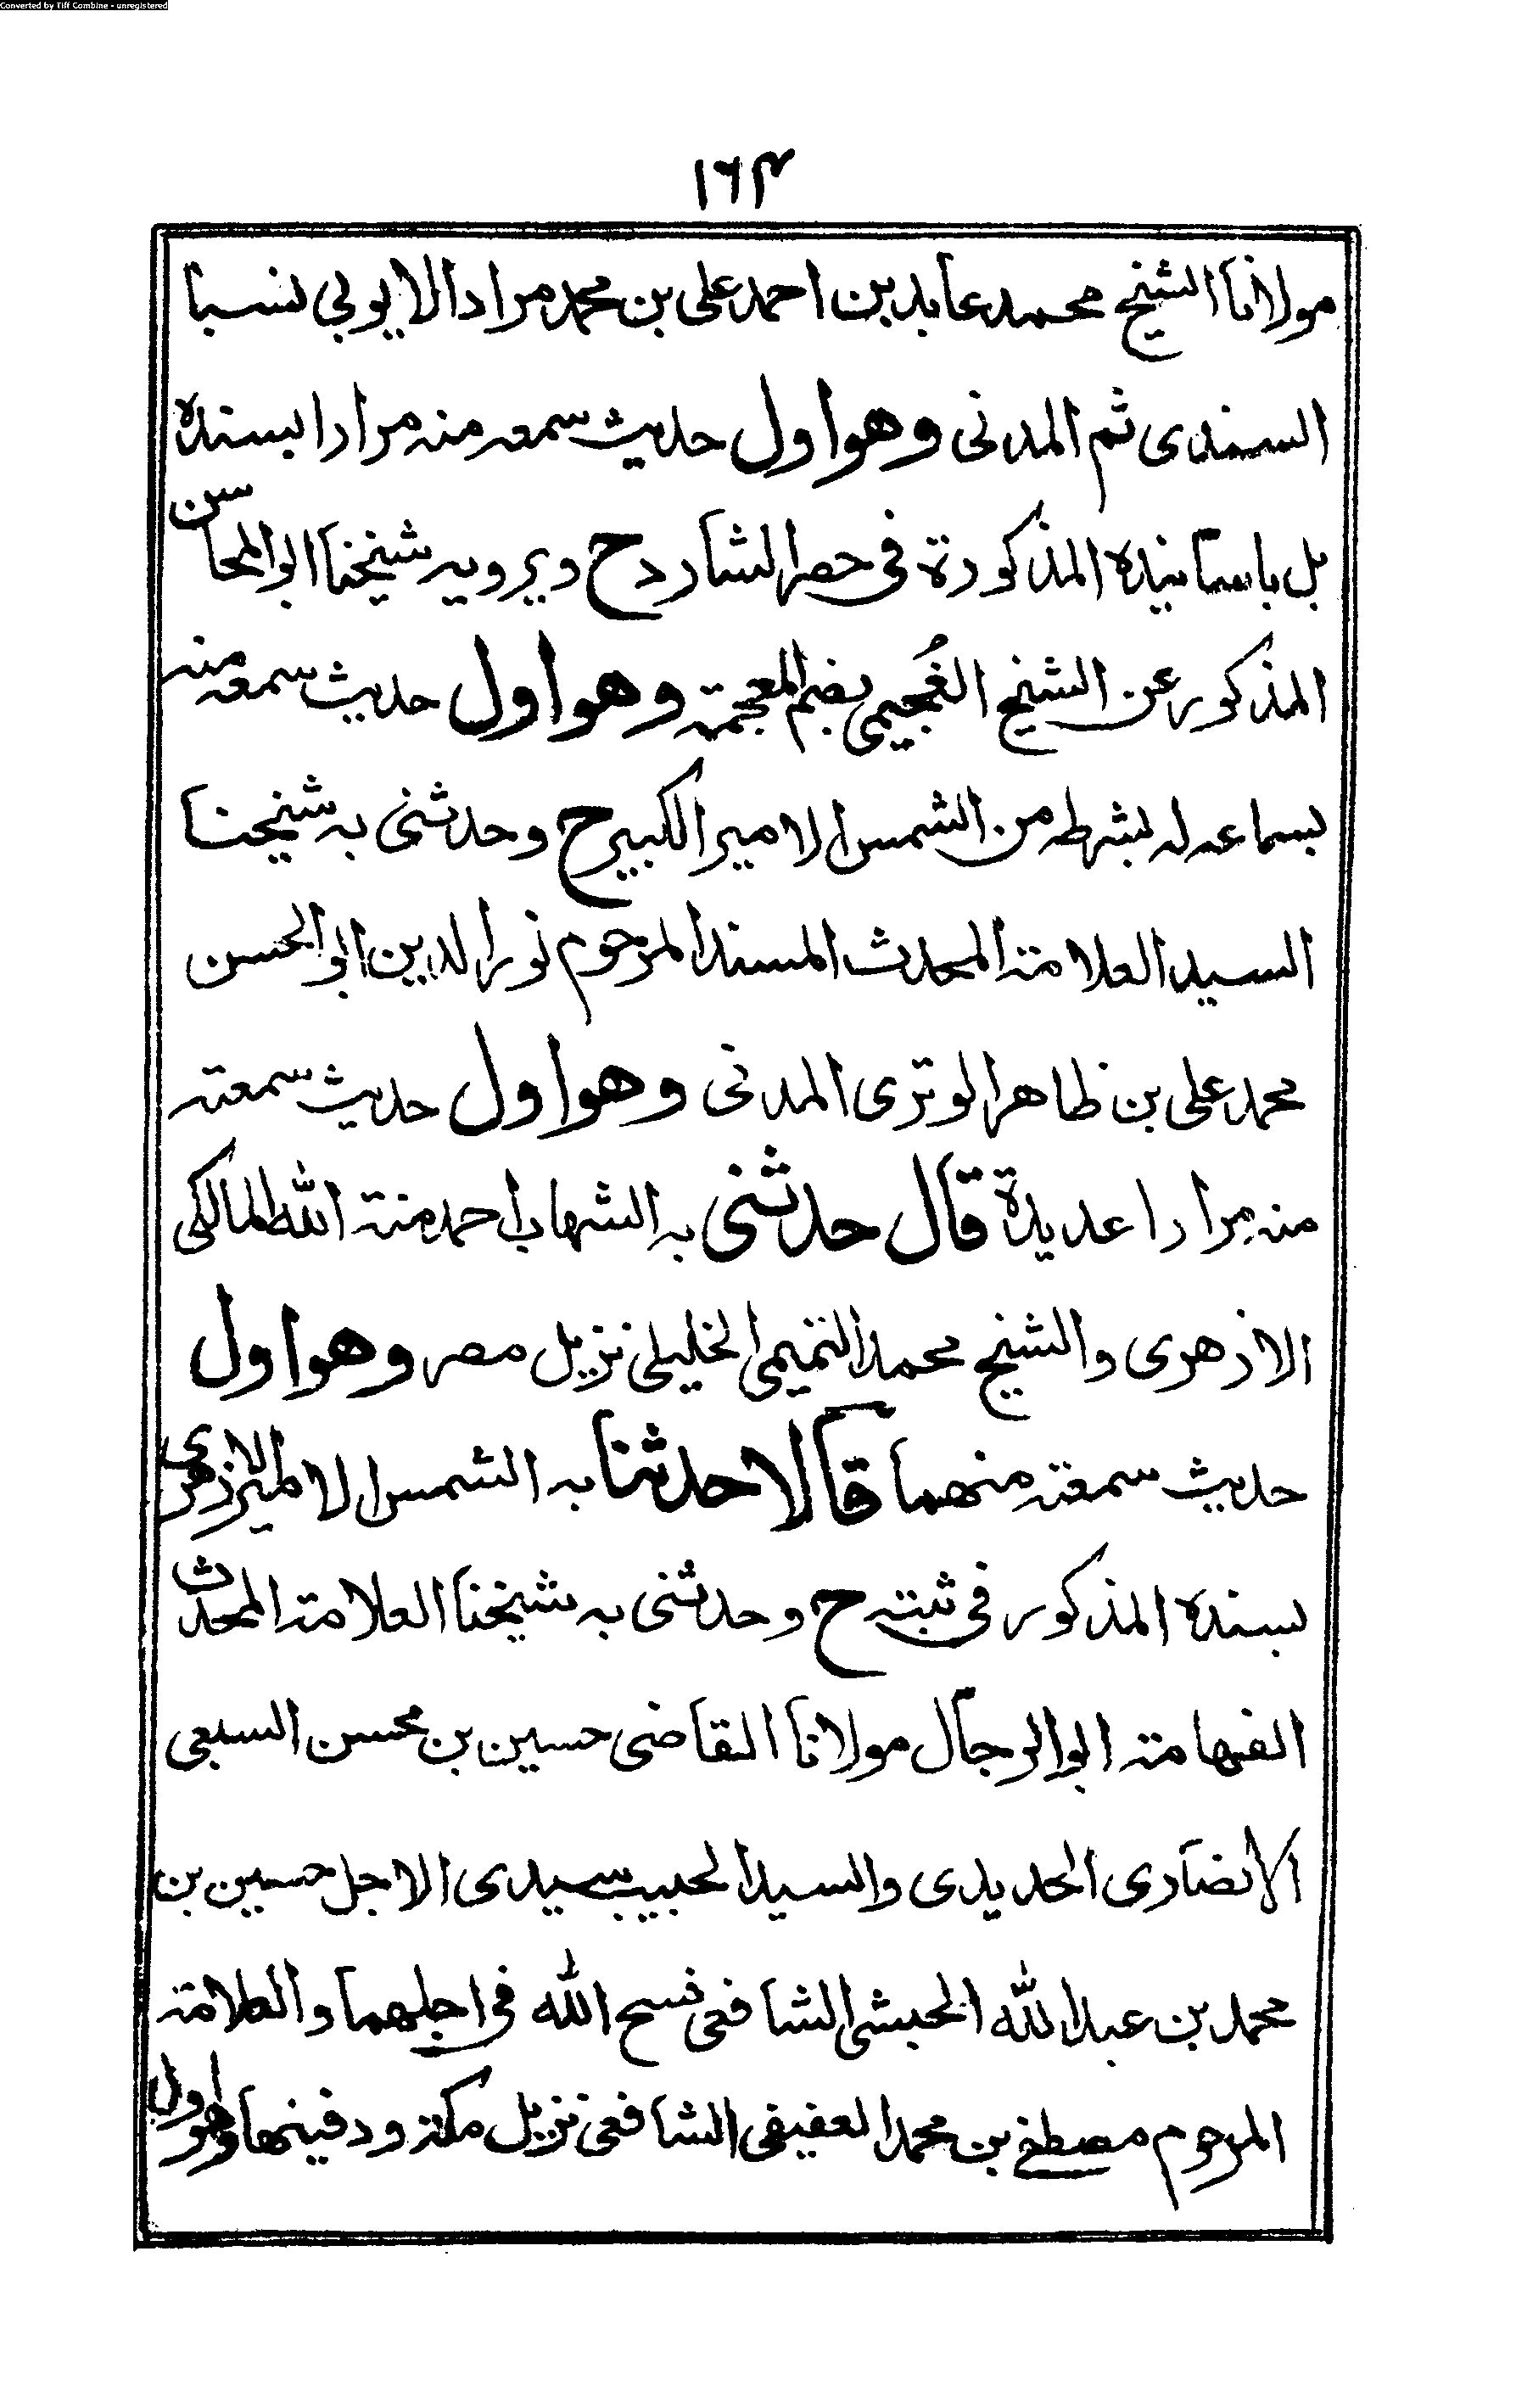 Converted by Tiff Combine - unregistered
۱۶۴
مولانا الشيخ محمد عابد بن احمد على بن محمد مراد الايوبي نسبا
السندى ثم المدنى وهو اول حديث سمعه منه مرارا بسنده
بل باسانيده المذكورة فى حصر الشارد ح ويرويه شيخنا ابو المحاسن
المذكور عن الشيخ الغُجيمى بضم المعجمة وهو اول حديث سمعه منه
بسماعه له بشرطه من الشمس الامير الكبير ح وحدثنى به شيخنا
السيد العلامة المحدث المسند المرحوم نور الدين ابو الحسن
محمد على بن ظاهر الوترى المدنى وهو اول حديث سمعته
منه مرارا عديدة قال حدثنى به الشهاب احمد منة الله المالكى
الازهرى والشيخ محمد التميمى الخليلى نزيل مصر وهو اول
حديث سمعته منهما قالا حدثنا به الشمس الامير الازهرى
بسنده المذكور فى ثبته ح وحدثنى به شيخنا العلامة المحدث
الفهامة ابو الرجال مولانا القاضى حسين بن محسن السبعى
الانصارى الحديدى والسيد الحبيب سيدى الاجل حسين بن
محمد بن عبد الله الحبشى الشافعى فسح الله فى اجلهما والعلامة
المرحوم مصطفى بن محمد العفيفى الشافعى نزيل مكة ودفينها وهو اول